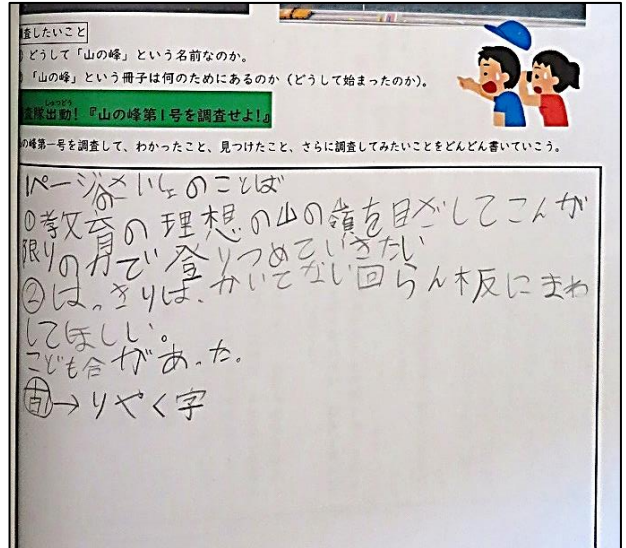 査したいこと
どうして「山の峰」という名前なのか。
「山の峰」という冊子は何のためにあるのか(どうして始まったのか)。
しゅつどう
査隊出動!『山の峰第1号を調査せよ!』
の峰第一号を調査して、わかったこと、見つけたこと、さらに調査してみたいことをどんどん書いていこう。
1ページのさいしょのことば
①教育の理想の山の嶺を目ざしてこんが
限りの力で登りつめていきたい
②はっきりは、かいてない回らん板にまわ
してほしい。
こども合があった。
→りやく字